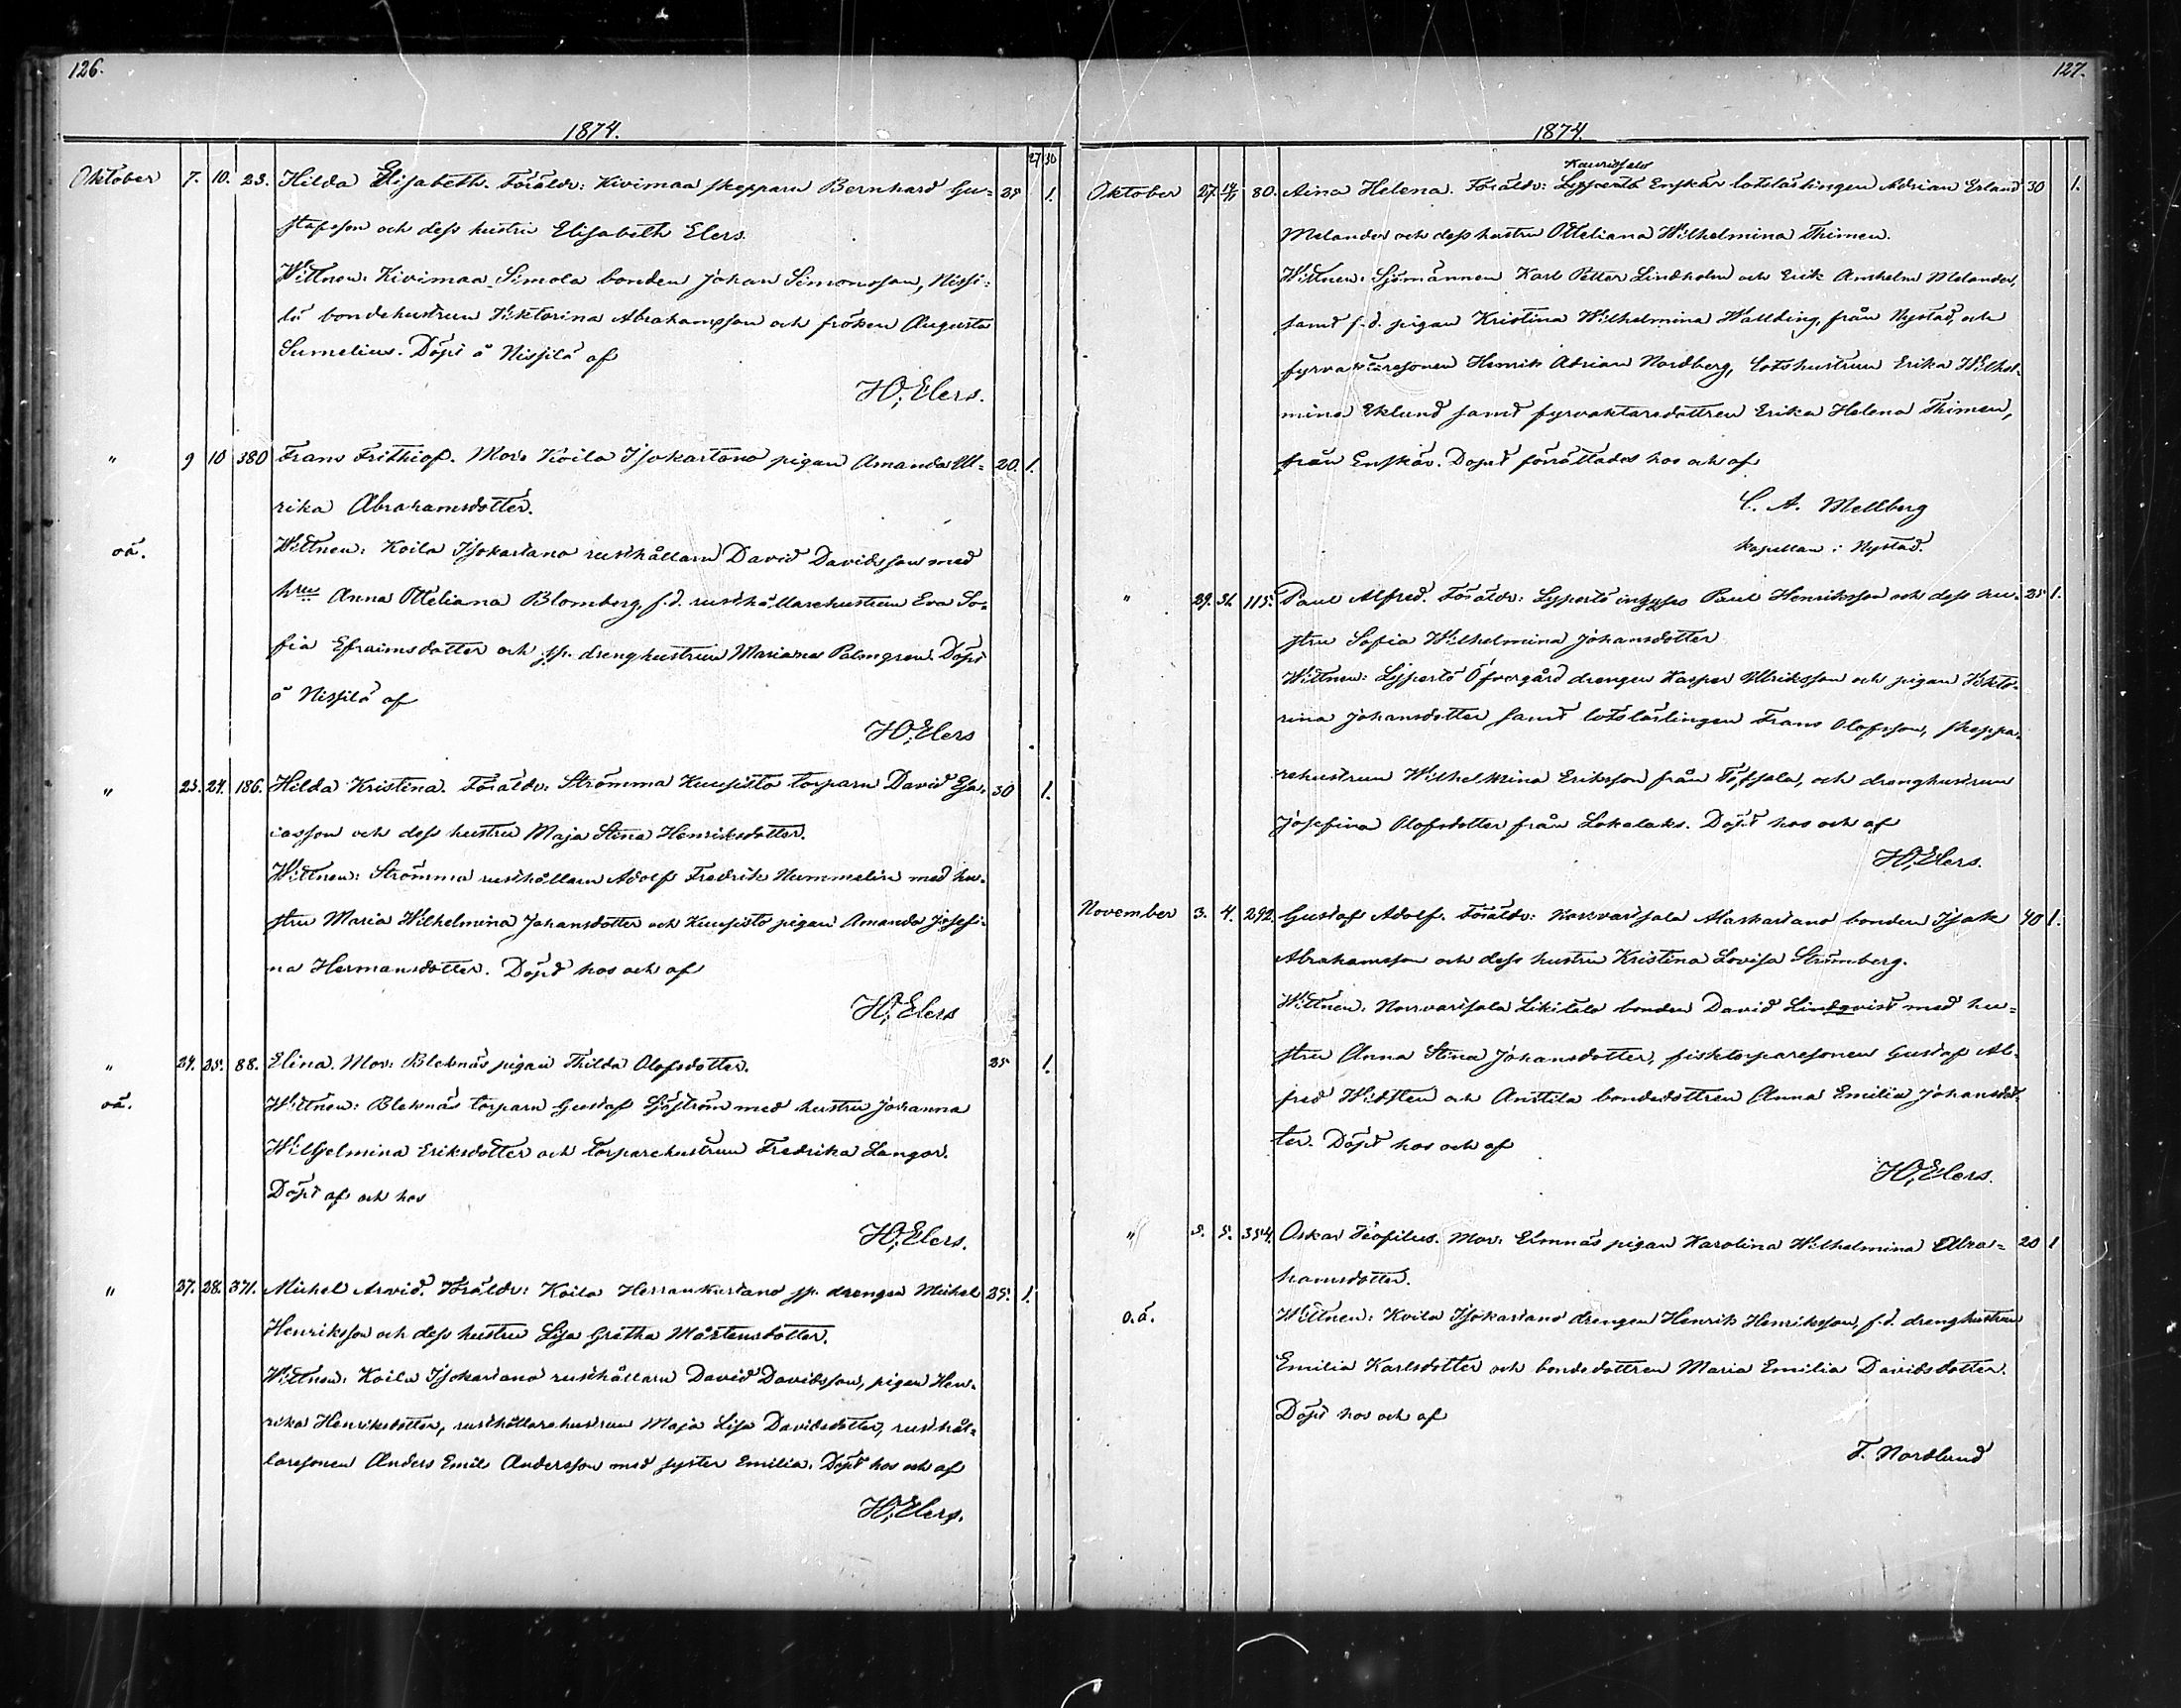 126.
1874.
27 30
Oktober 7. 10. 23. Hilda Elisabeth. Föräldr: Kivimaa skepparn Bernhard Gu- 1.
stafsson och dess hustru Elisabeth Elers.
Wittnen: Kivimaa Simola bonden Johan Simonsson, Nissi-
lä bondehustrun Viktorina Abrahamsson och fröken Augusta
Sumelius. Döpt å Nissilä af
H. Elers.
" 9 10 380 Frans Frithiof. Mor: Koila Isokartano pigan Amanda Ul- 20. 1.
rika Abrahamsdotter.
oä. Wittnen: Koila Isokartano rusthållarn David Davidsson med
hru Anna Otteliana Blomberg, f.d. rusthållarehustrun Eva So-
fia Efraimsdotter och sp. dreng hustrun Mariana Palmgren. Döpt
å Nissilä af
H. Elers
" 23. 24. 186. Hilda Kristina. Föräldr: Strömma Kuusisto torparn David Esa- 30 1.
iasson och dess hustru Maja Stina Henriksdotter.
Wittnen: Strömma rusthållarn Adolf Fredrik Nummelin med hu-
stru Maria Wilhelmina Johansdotter och Kuusisto pigan Amanda Josefi-
na Hermansdotter. Döpt hos och af
H. Elers
" 24. 25. 88. Elina. Mor: Bleknäs pigan Thilda Olofsdotter. 25 1.
oä. Wittnen: Bleknäs torparn Gustaf Sjöström med hustru Johanna
Wilhelmina Eriksdotter och torparehustrun Fredrika Langor.
Döpt af och hos
H. Elers.
" 27. 28. 371. Mickel Arvid. Föräldr: Koila Herrankartano sp. drengen Mickel 25. 1.
Henriksson och dess hustru Lisa Gretha Mårtensdotter.
Wittnen: Koila Isokartano rusthållarn David Davidsson, pigan Hen-
rika Henriksdotter, rusthållarehustrun Maja Lisa Davidsdotter, rusthål-
laresonen Anders Emil Andersson med syster Emilia. Döpt hos och af
H. Elers.
127.
1874.
Oktober 27. 80. Aina Helena. Föräldr: Lypertö Enskär lotslärlingen Adrian Erland 30 1.
Melander och dess hustru Otteliana Wilhelmina Thimen.
Wittnen: Sjömännen Karl Petter Lindholm och Erik Anshelm Melander,
samt f.d. pigan Kristina Wilhelmina Wallding, från Nystad, och
fyrvaktaresonen Henrik Adrian Nordberg, lotshustrun Erika Wilhel-
mina Eklund samt fyrvaktaredottren Erika Helena Thimen,
från Enskär. Dopet förrättades hos och af
C. A. Mellberg
kapellan i Nystad.
" 29. 31. 115. Paul Alfred. Föräldr: Lypertö inhyses Paul Henriksson och dess hu- 25 1.
stru Sofia Wilhelmina Johansdotter
Wittnen: Lypertö Öfvergård drengen Kasper Ulriksson och pigan Vikto-
rina Johansdotter samt lotslärlingen Frans Olofsson, skeppa-
rehustrun Wilhelmina Eriksson från Töfsala, och drenghustrun
Josefina Olofsdotter från Lokalaks. Döpt hos och af
H. Elers.
November 3. 4. 292. Gustaf Adolf. Föräldr: Norrvartsala Alaskartano bonden Isak 40 1.
Abrahamsson och dess hustru Kristina Lovisa Strömberg.
Wittnen: Norrvartsala Likitalo bonden David Lindqvist med hu-
stru Anna Stina Johansdotter, fisktorparesonen Gustaf Al-
fred Widsten och Anttila bondedottren Anna Emilia Johansdot-
ter. Döpt hos och af
H. Elers.
" 5. 5. 354. Oskar Teofilus. Mor: Elmnäs pigan Karolina Wilhelmina Abra- 20 1
hamsdotter.
o.ä. Wittnen: Koila Isokartano drengen Henrik Henriksson, f.d. drenghustrun
Emilia Karlsdotter och bondedottren Maria Emilia Davidsdotter.
Döpt hos och af
F. Nordlund